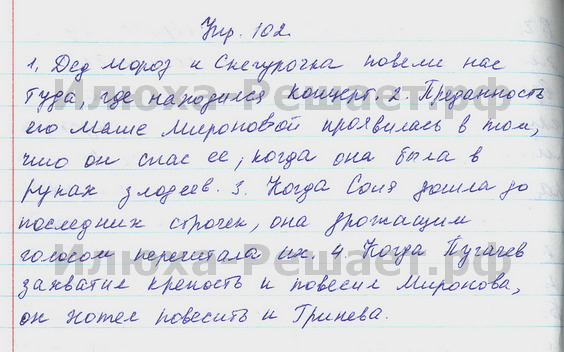 Упр. 102.
1. Дед Мороз и Снегурочка повели нас
туда, где находился концерт. 2. Преданность
его Маше Мироновой проявилась в том,
что он спас ее, когда она была в
руках злодеев. 3. Когда Соня дошла до
последних строчек, она дрожащим
голосом перечитала их. 4. Когда Пугачев
захватил крепость и повесил Миронова,
он хотел повесить и Гринева.
Илюха-Решает.рф
Илюха-Решает.рф